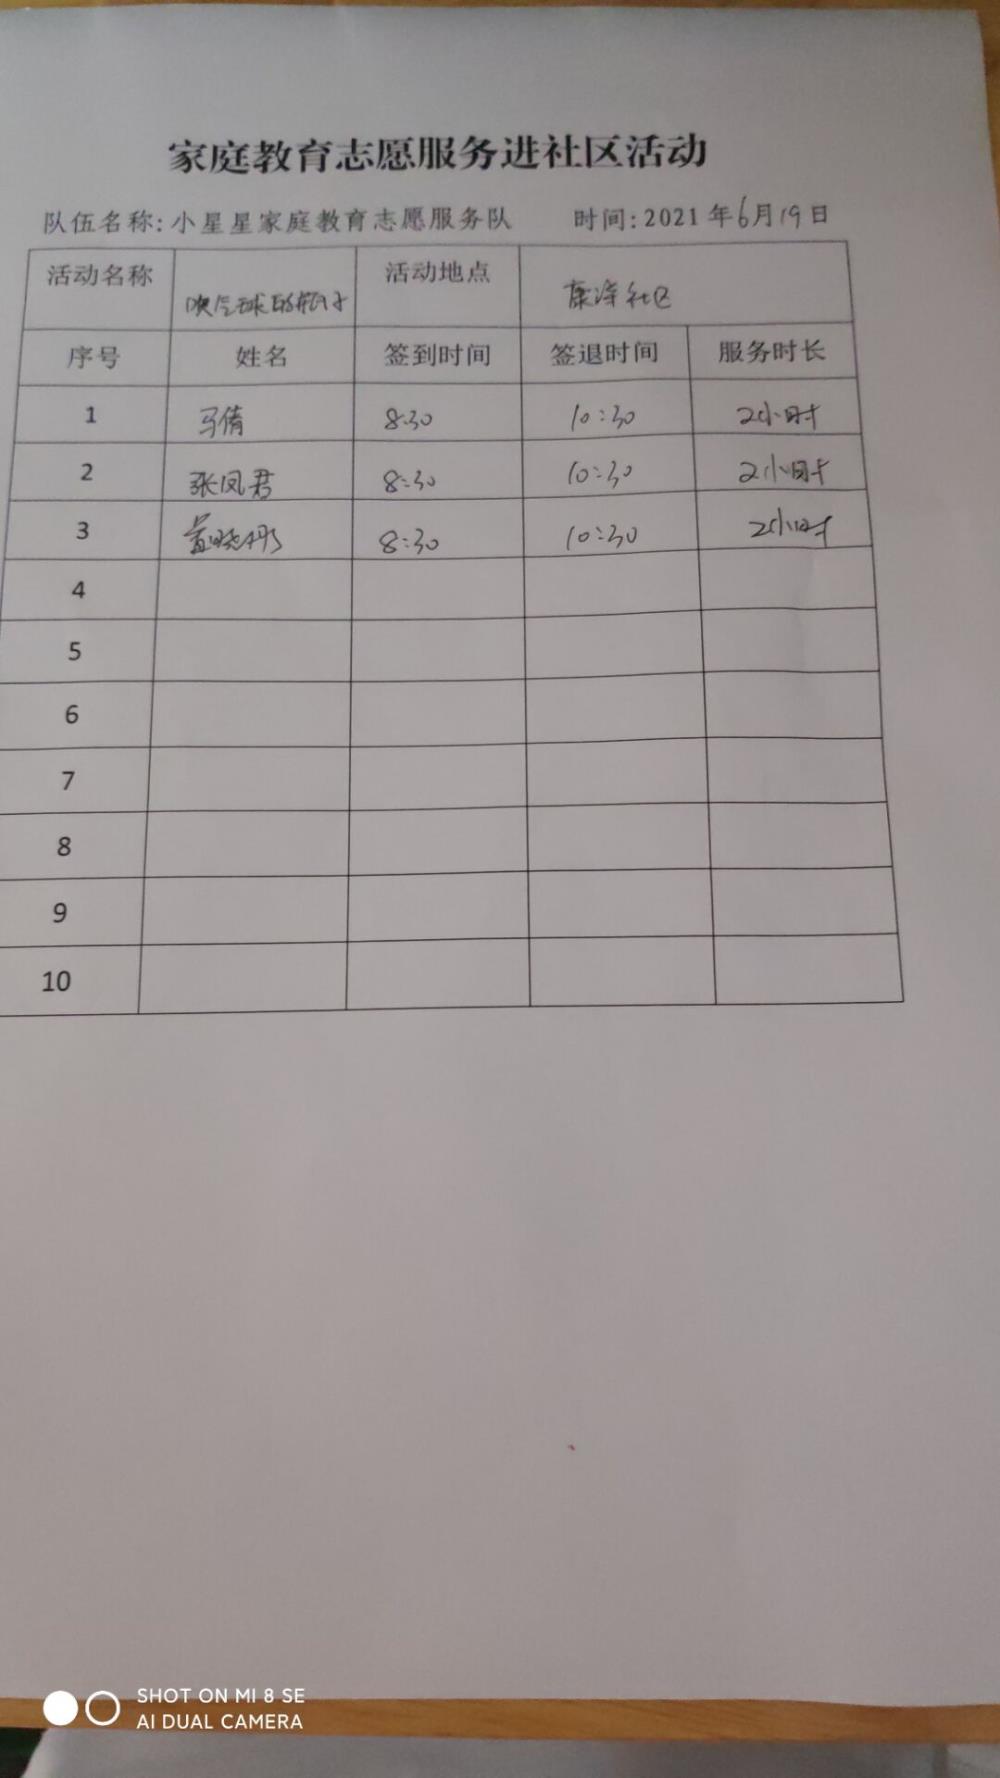 家庭教育志愿服务进社区活动
队伍名称:小星星家庭教育志愿服务队 时间:2021年6月19日
活动名称 吹气球的瓶子 活动地点 康泽社区
序号 姓名 签到时间 签退时间 服务时长
1 马倩 8:30 10:30 2小时
2 张凤君 8:30 10:30 2小时
3 晓彤 8:30 10:30 2小时
4
5
6
7
8
9
10
SHOT ON MI 8 SE
AI DUAL CAMERA